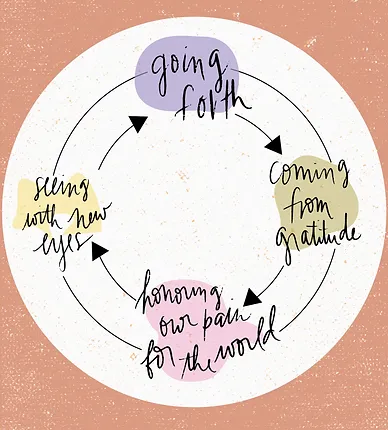 going
forth
coming
from
gratitude
honoring
our pain
for the world
seeing
with new
eyes